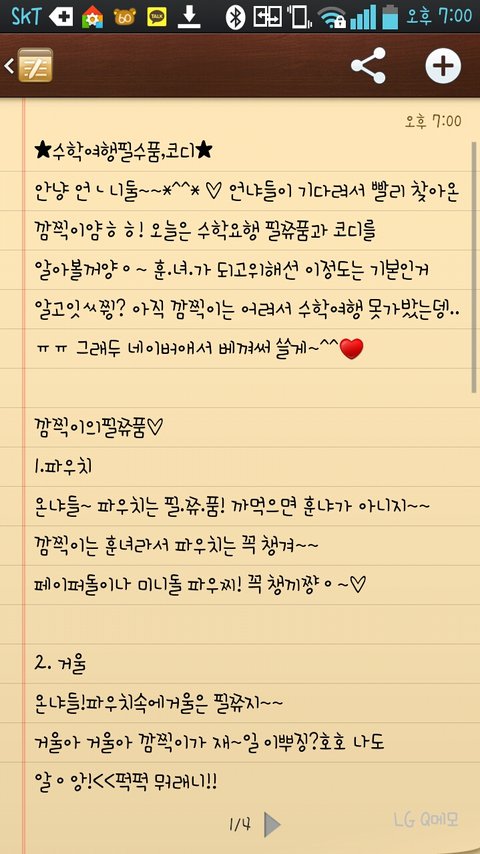 SKT 60 TALK 오후 7:00
오후 7:00
★수학여행필수품,코디★
안냥 언ㆍ니둘~~*^^* ♡ 언냐들이 기다려서 빨리 찾아온
깜찍이얌ㅎㅎ! 오늘은 수학요행 필쮸품과 코디를
알아볼꺼양ㅇ~ 훈.녀.가 되고위해선 이정도는 기본인거
알고잇ㅆ찡? 아직 깜찍이는 어려서 수학여행 못가밨는뎅..
ㅠㅠ 그래두 네이버애서 베껴써 쓸게~^^❤
깜찍이의필쮸품♡
1.파우치
온냐들~ 파우치는 필.쮸.품! 까먹으면 훈냐가 아니지~~
깜찍이는 훈녀라서 파우치는 꼭 챙겨~~
페이퍼돌이나 미니돌 파우찌! 꼭 챙끼쨩ㅇ~♡
2. 거울
온냐들!파우치속에거울은 필쮸지~~
거울아 거울아 깜찍이가 재~일 이뿌징?호호 나도
알ㅇ앙!<<퍽퍽 뭐래니!!
1/4
LG Q메모